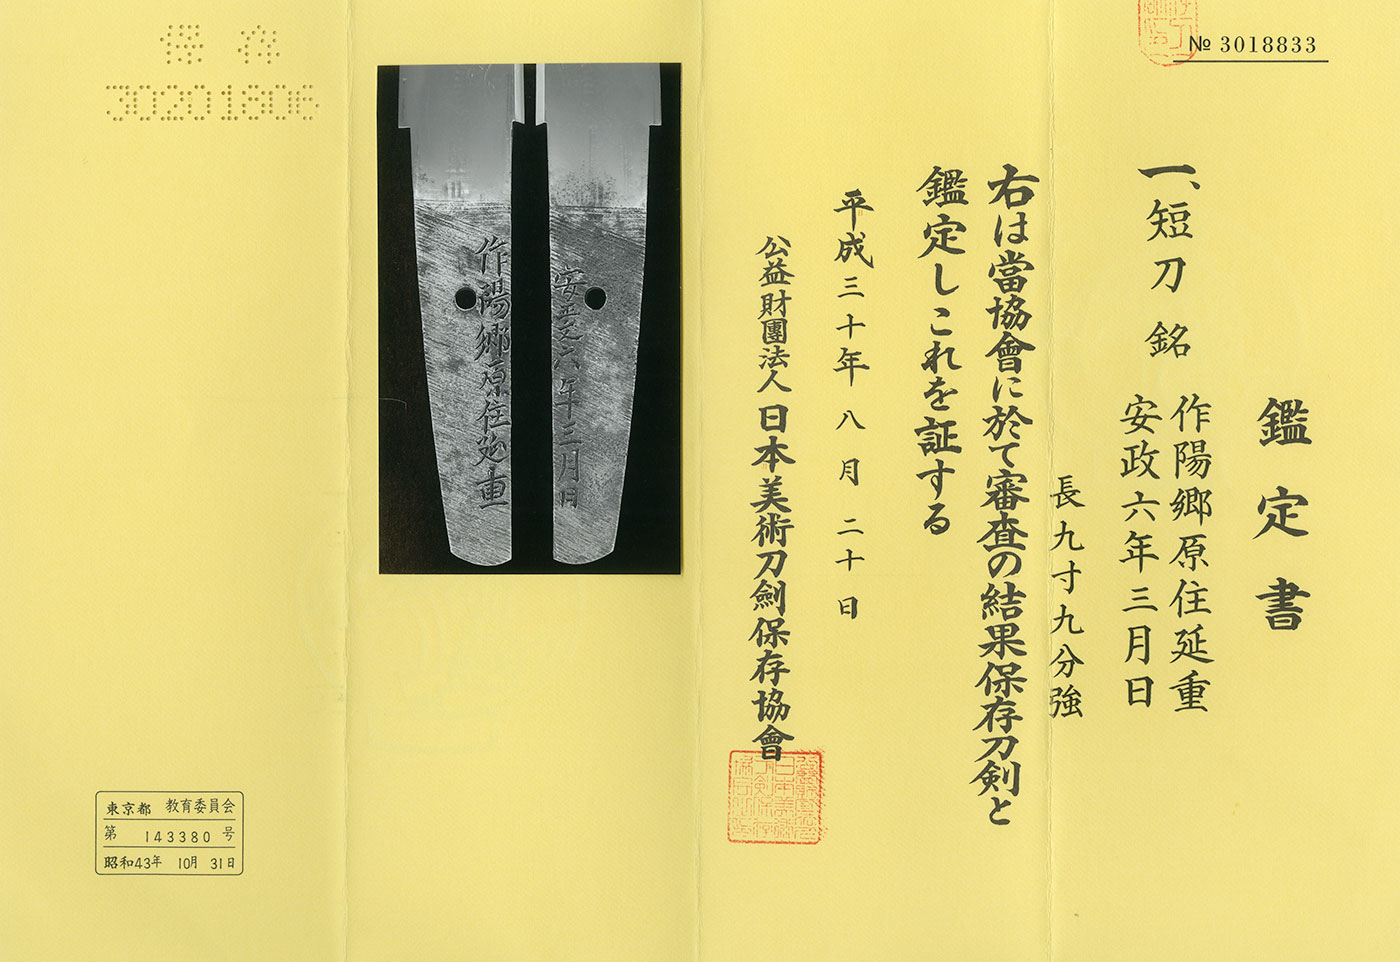 № 3018833
鑑定書
一、短刀 銘 作陽郷原住延重
安政六年三月日
長九寸九分強
右は當協會に於て審査の結果保存刀剣と
鑑定しこれを証する
平成三十年八月二十日
公益財團法人日本美術刀劍保存協會
安政六年三月日
作陽郷原住延重
保存
30201806
東京都 教育委員会
第 143380 号
昭和43年 10月 31日